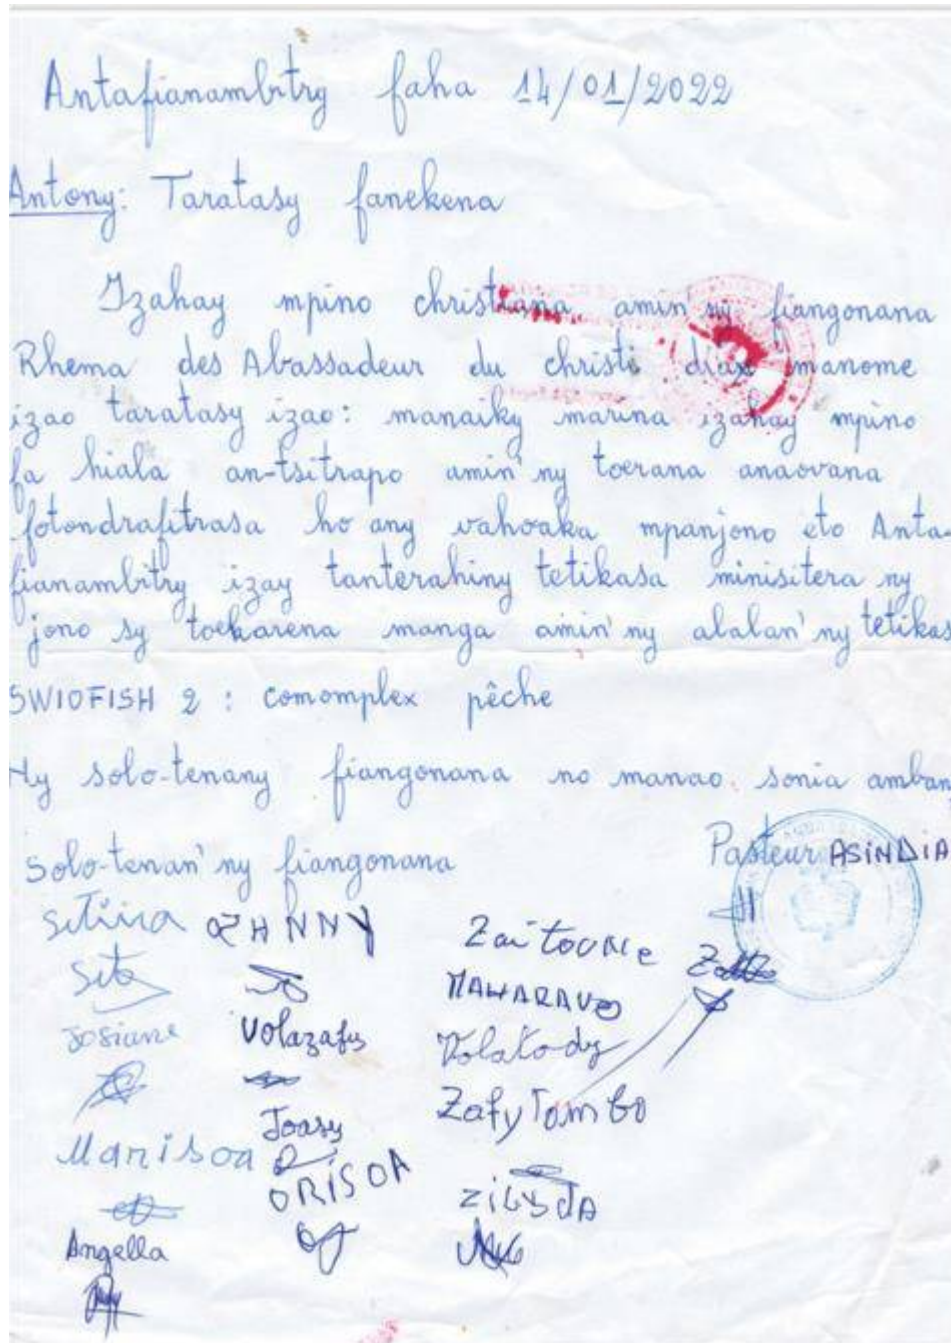 Antafianambitry faha 14/01/2022
Antony: Taratasy fanekena
Izahay mpino christiana amin'ny fiangonana
Rhema des Abassadeur du christi diax manome
izao taratasy izao: manaiky marina izahay mpino
fa hiala an-tsitrapo amin'ny toerana anaovana
fotondrafitrasa ho any vahoaka mpanjono eto Anta-
fianambitry izay tanterahiny tetikasa minisitera ny
jono sy toekarena manga amin'ny alalan'ny tetikas
SWIOFISH 2 : comomplex pêche
Ny solo-tenany fiangonana no manao sonia amban
Solo-tenan'ny fiangonana Pasteur ASINDIA
Setiria ZHNNY Zaitoune
Josiane Volazafy MAHARAVO
Volatody
Joasy Zafy Tombo
Marisoa ORISOA
Angella